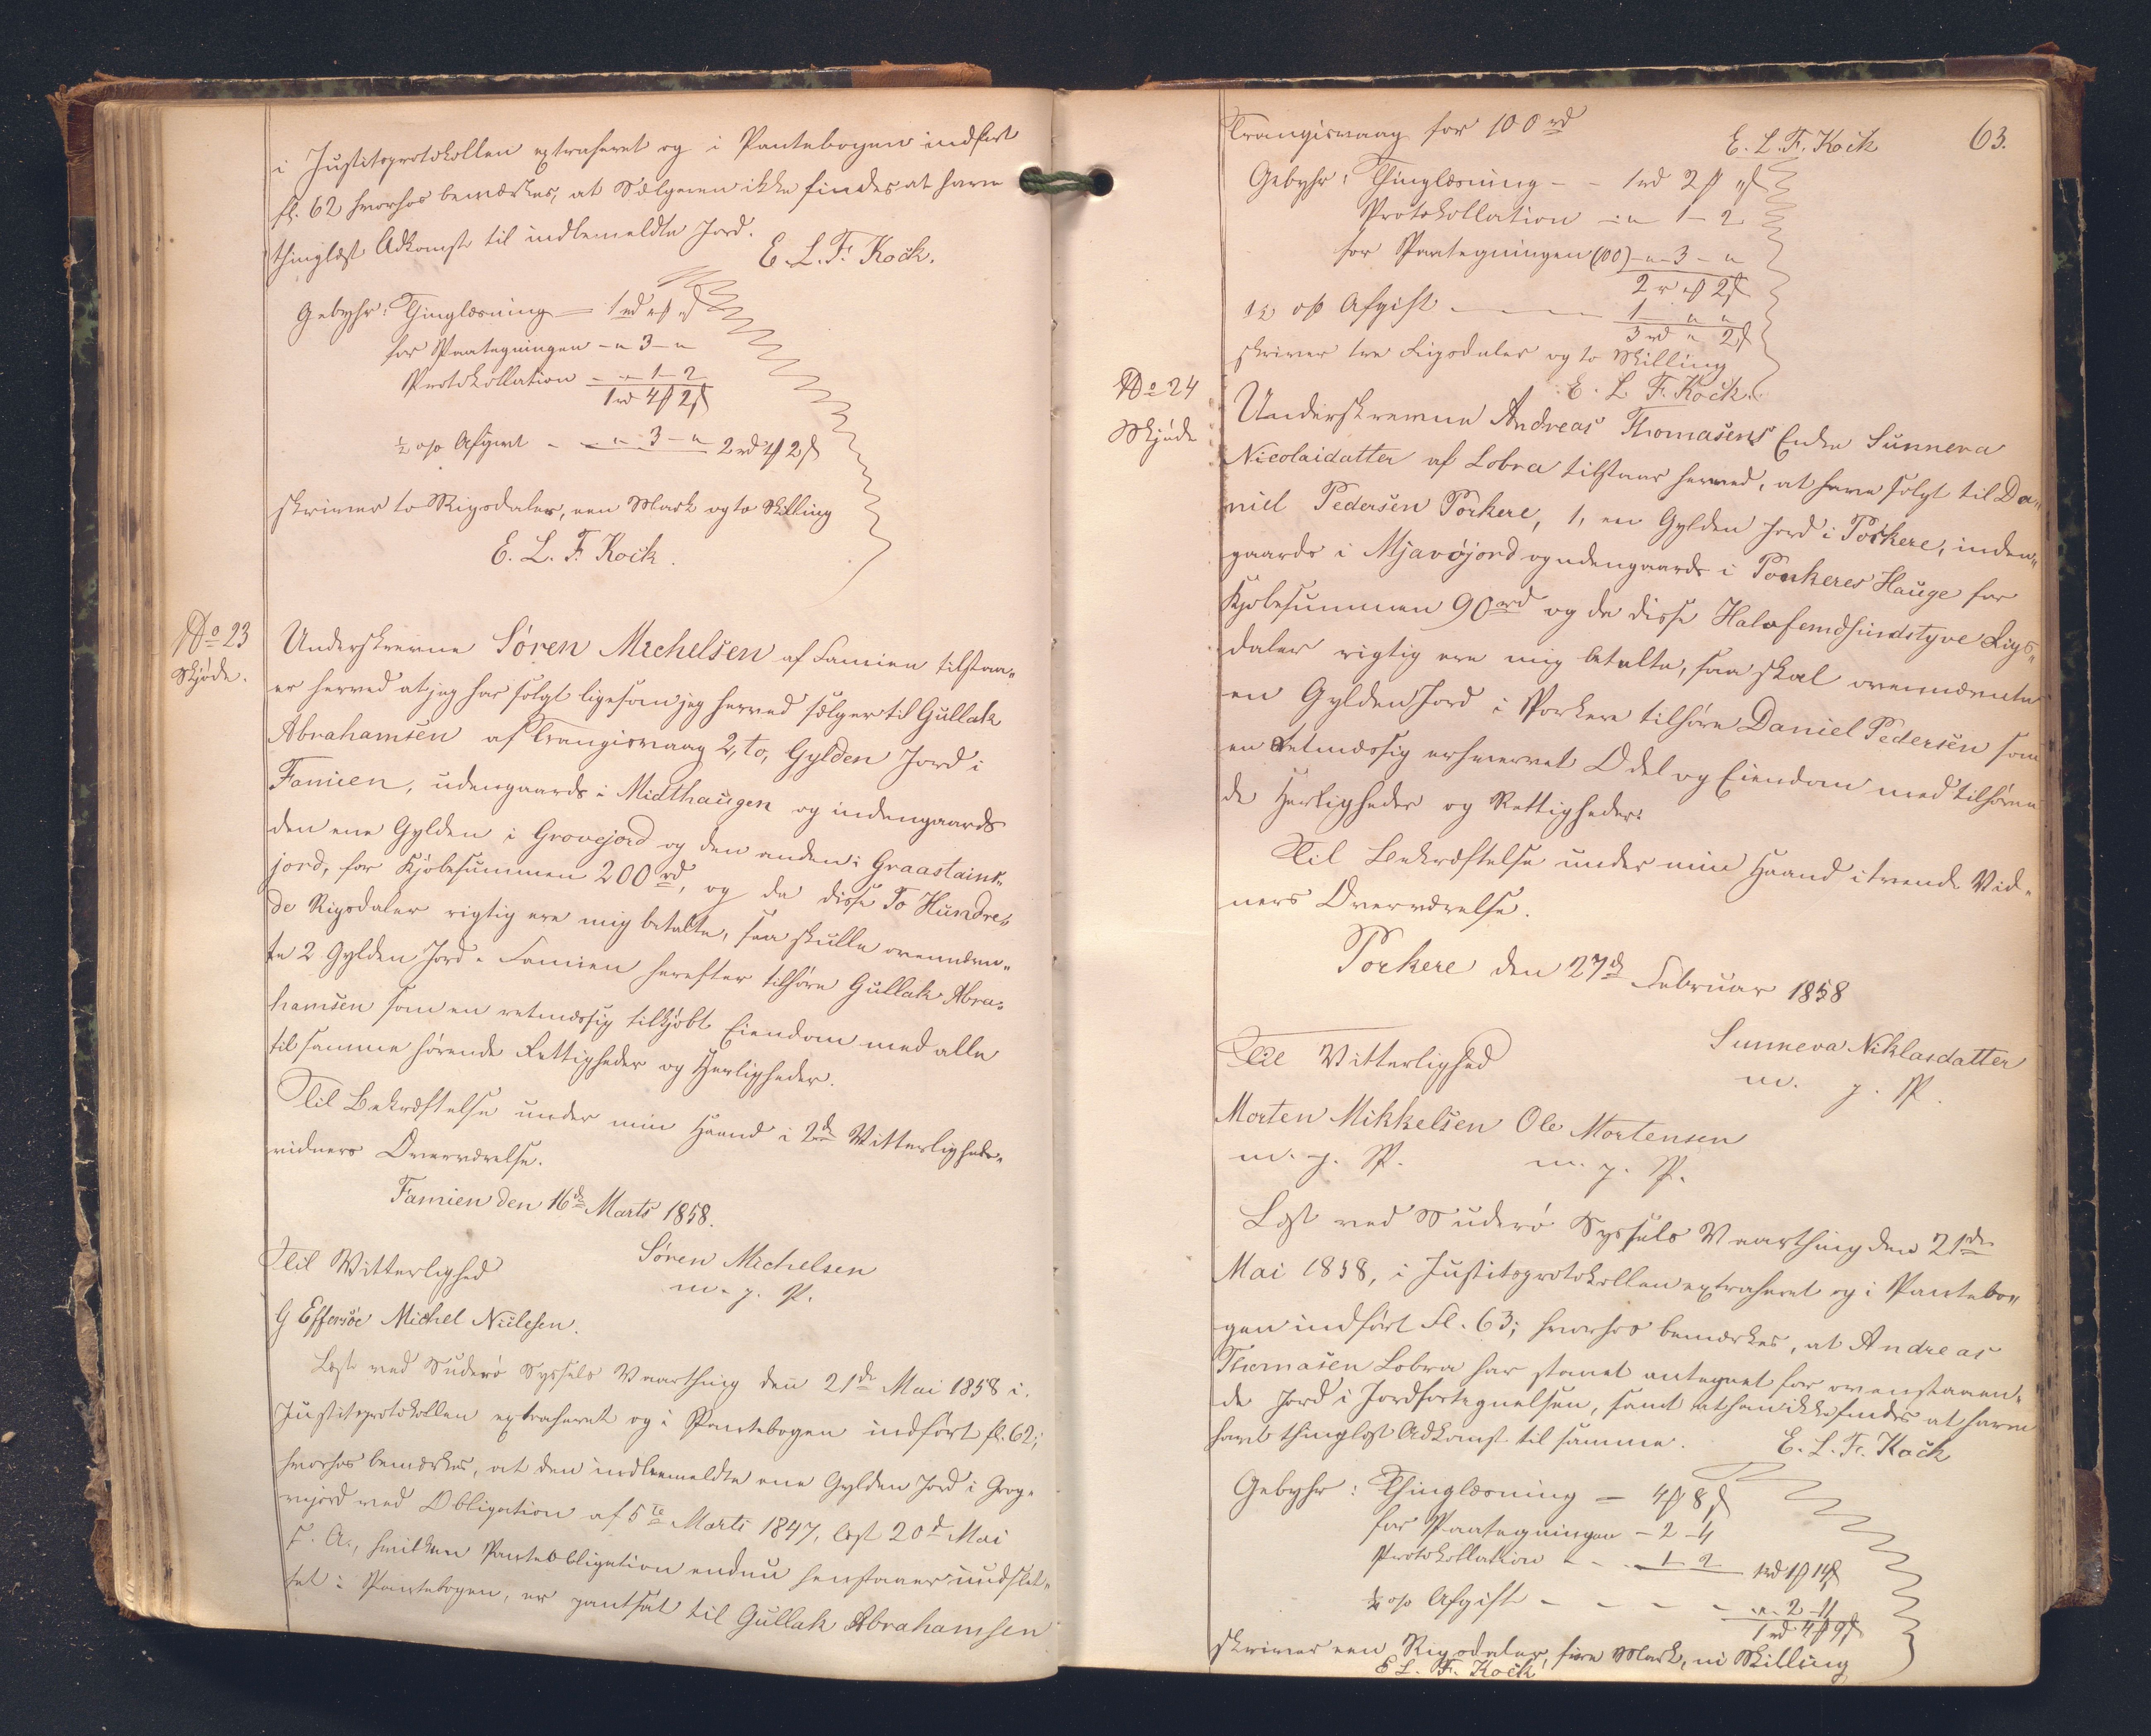 i Justitsprotokollen extraheret og i Pantebogen indført
fl. 62 hvorhos bemærkes, at Sælgeren ikke findes at have
thinglæst Adkomst til indbemeldte Jord.
E. L. F. Kock.
Gebyhr: Thinglæsning — 1 rd " "
for Paategningen - " 3 - "
Protokollation - " - 1 - 2
1 rd 4 # 2 ß
½ o/o Afgivt - - " - 3 - " 2 rd 1 # 2 ß
skriver to Rigsdaler, een Mark og to Skilling
E. L. F. Kock.
No 23
Skjøde.
Underskrevne Søren Michelsen af Famien tilstaa„
er herved at jeg har solgt ligesom jeg herved sælger til Gullak
Abrahamsen af Trangisvaag 2, to, Gylden Jord i
Famien, udengaards i Midthaugen og indengaards
den ene Gylden i Grovejord og den anden i Graastains„
jord, for Kjøbesummen 200 rd, og da disse To Hundre„
de Rigsdaler rigtig ere mig betalte, saa skulle ovennævn„
te 2 Gylden Jord i Famien herefter tilhøre Gullak Abra„
hamsen som en retmæssig tilkjøbt Eiendom med alle
til samme hørende Rettigheder og Herligheder.
Til Bekræftelse under min Haand i 2de Vitterligheds„
vidners Overværelse.
Famien den 16de Marts 1858.
Søren Michelsen
m. p. P.
Til Vitterlighed
G Effersöe Michel Nielsen.
Læst ved Suderø Syssels Vaarthing den 21de Mai 1858 i
Justitsprotokollen extraheret og i Pantebogen indført fl. 62;
hvorhos bemærkes, at den indbemeldte ene Gylden Jord i Gro„
vejord ved Obligation af 5te Marts 1847, læst 20d Mai
s. A., hvilken Panteobligation endnu henstaaer uudslet„
tet i Pantebogen, er pantsat til Gullak Abrahamsen
63.
Trangisvaag for 100 rd
E. L. F. Kock
Gebyhr: Thinglæsning - - 1 rd 2 # " ß
Protokollation - " - 1 - 2
for Paategningen (100) - " - 3 - "
2 r " # 2 ß
½ o/o Afgift - - - - 1 " "
3 rd " 2 ß
skriver tre Rigsdaler og to Skilling
E. L. F. Kock.
No 24
Skjøde
Underskrevne Andreas Thomasens Enke Sunneva
Nicolaidatter af Lobra tilstaar herved, at have solgt til Da„
niel Pedersen Porkere, 1, en Gylden Jord i Porkere, inden„
gaards i Mjavøjord og udengaards i Porkeres Hauge for
Kjøbesummen 90 rd og da disse Halvfemdsindstyve Rigs„
daler rigtig ere mig betalte, saa skal ovennævnte
en Gylden Jord i Porkere tilhøre Daniel Pedersen som
en retmæssig erhvervet Odel og Eiendom med tilhøren
de Herligheder og Rettigheder.
Til Bekræftelse under min Haand i tvende Vid„
ners Overværelse.
Porkere den 27d Februar 1858
Sunneva Niklasdatter
m. p. P.
Til Vitterlighed
Morten Mikkelsen Ole Mortensen
m. p. P. m. p. P.
Læst ved Suderø Syssels Vaarthing den 21de
Mai 1858, i Justitsprotokollen extraheret og i Pantebo„
gen indført Fl. 63; hvorhos bemærkes, at Andreas
Thomasen Lobra har staaet antegnet for ovenstaaen„
de Jord i Jordfortegnelsen, samt at han ikke findes at have
havt thinglæst Adkomst til samme.
E. L. F. Kock
Gebyhr: Thinglæsning — 4 # 8 ß
for Paategningen - 2 - 4
Protokollation - - 1 - 2 1 rd 1 # 14 ß
½ o/o Afgift - - - - " - 2 - 11
1 rd 4 # 9 ß
skriver een Rigsdaler, fire Mark, ni Skilling
E. L. F. Kock